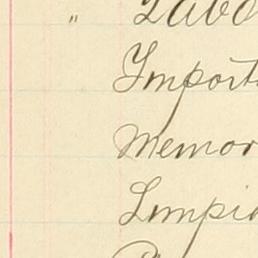 " Labo
Import
Memor
Limpi